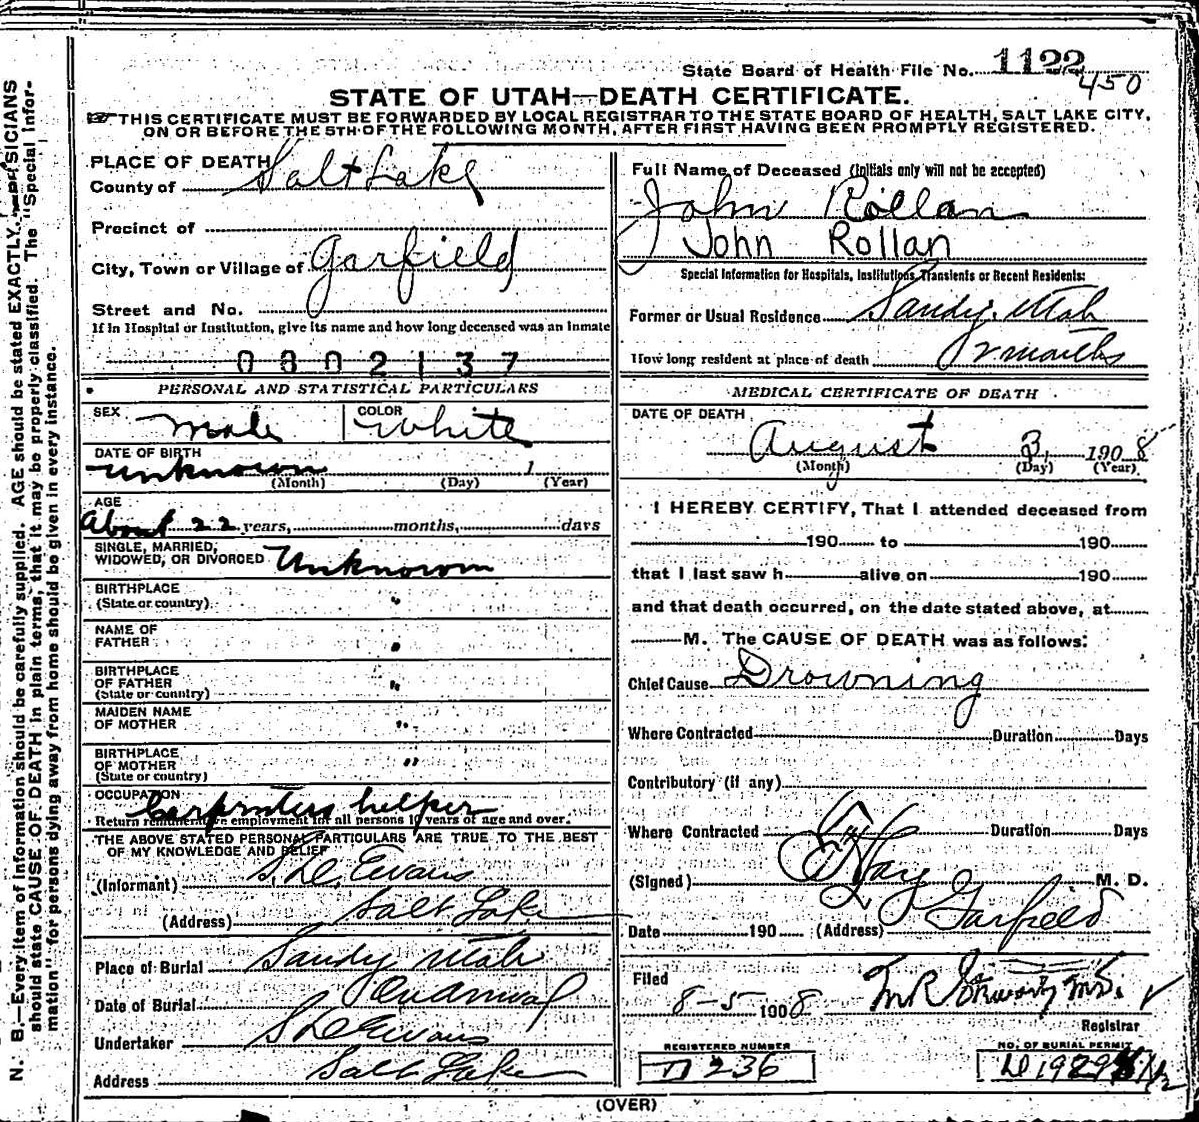 State Board of Health File No. 1122
450
STATE OF UTAH—DEATH CERTIFICATE.
THIS CERTIFICATE MUST BE FORWARDED BY LOCAL REGISTRAR TO THE STATE BOARD OF HEALTH, SALT LAKE CITY,
ON OR BEFORE THE 5TH OF THE FOLLOWING MONTH, AFTER FIRST HAVING BEEN PROMPTLY REGISTERED.
N. B.—Every item of Information should be carefully supplied. AGE should be stated EXACTLY. PHYSICIANS
should state CAUSE OF DEATH in plain terms, that it may be properly classified. The "Special Infor-
mation" for persons dying away from home should be given in every instance.
PLACE OF DEATH
County of Salt Lake
Precinct of
City, Town or Village of Garfield
Street and No.
If in Hospital or Institution, give its name and how long deceased was an inmate
0802137
PERSONAL AND STATISTICAL PARTICULARS
SEX Male COLOR White
DATE OF BIRTH
unknown 1
(Month) (Day) (Year)
AGE
About 22 years, months, days
SINGLE, MARRIED,
WIDOWED, OR DIVORCED Unknown
BIRTHPLACE
(State or country) "
NAME OF
FATHER "
BIRTHPLACE
OF FATHER
(State or country) "
MAIDEN NAME
OF MOTHER "
BIRTHPLACE
OF MOTHER
(State or country) "
OCCUPATION Carpenters helper
Return remunerative employment for all persons 10 years of age and over.
THE ABOVE STATED PERSONAL PARTICULARS ARE TRUE TO THE BEST
OF MY KNOWLEDGE AND BELIEF
(Informant) S. D. Evans
(Address) Salt Lake
Place of Burial Sandy Utah
Date of Burial
Undertaker S D Evans
Address Salt Lake
Full Name of Deceased (Initials only will not be accepted)
John Rollan
John Rollan
Special Information for Hospitals, Institutions, Transients or Recent Residents:
Former or Usual Residence Sandy, Utah
How long resident at place of death 2 months
MEDICAL CERTIFICATE OF DEATH
DATE OF DEATH
August 3, 1908
(Month) (Day) (Year)
I HEREBY CERTIFY, That I attended deceased from
190 to 190
that I last saw h alive on 190
and that death occurred, on the date stated above, at
M. The CAUSE OF DEATH was as follows:
Chief Cause Drowning
Where Contracted Duration Days
Contributory (if any)
Where Contracted Duration Days
(Signed) M. D.
Date 190 (Address) Garfield
Filed
8-5 1908 M.D.
Registrar
REGISTERED NUMBER
D 236
NO. OF BURIAL PERMIT
(OVER)